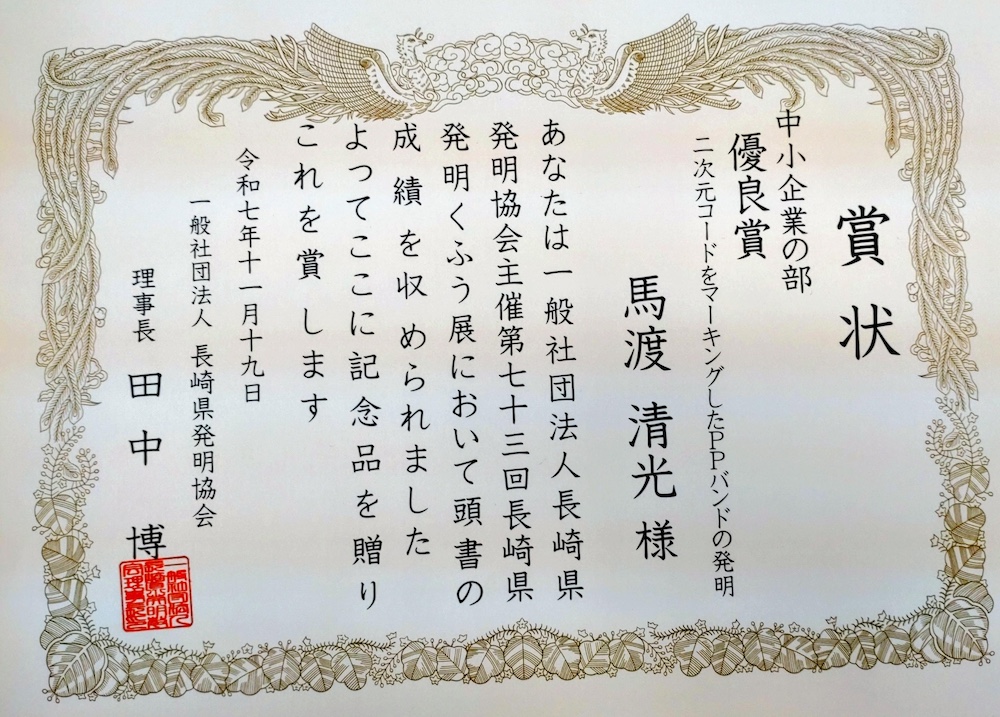 賞状
中小企業の部
優良賞
二次元コードをマーキングしたPPバンドの発明
馬渡 清光 様
あなたは一般社団法人長崎県
発明協会主催第七十三回長崎県
発明くふう展において頭書の
成績を収められました
よってここに記念品を贈り
これを賞します
令和七年十一月十九日
一般社団法人 長崎県発明協会
理事長 田中 博